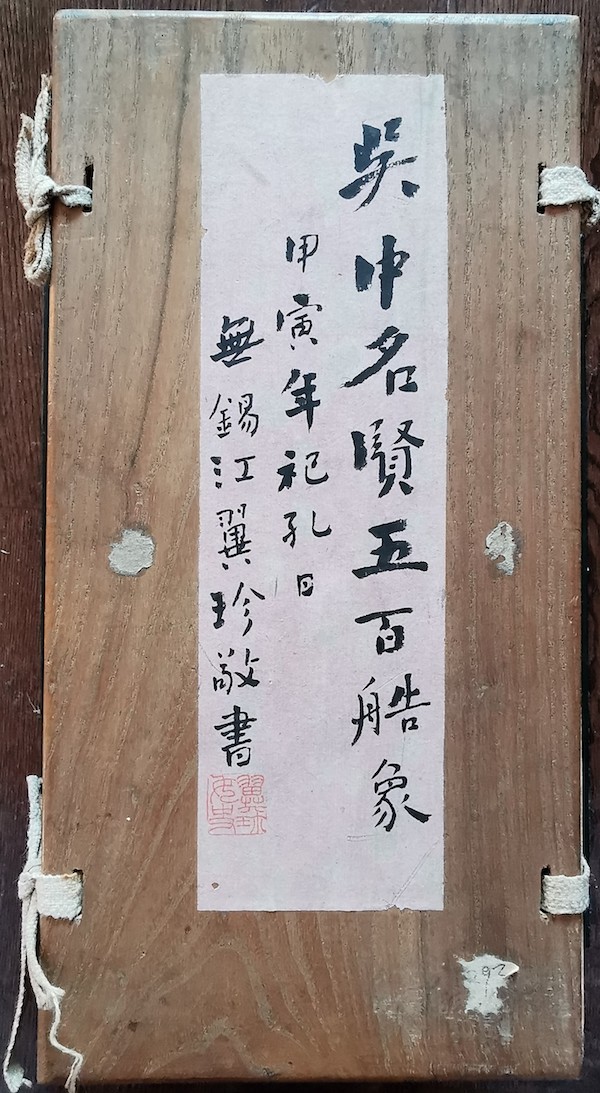 吳中名賢五百艁象
甲寅年祀孔日
無錫江翼珍敬書
翼珍女史